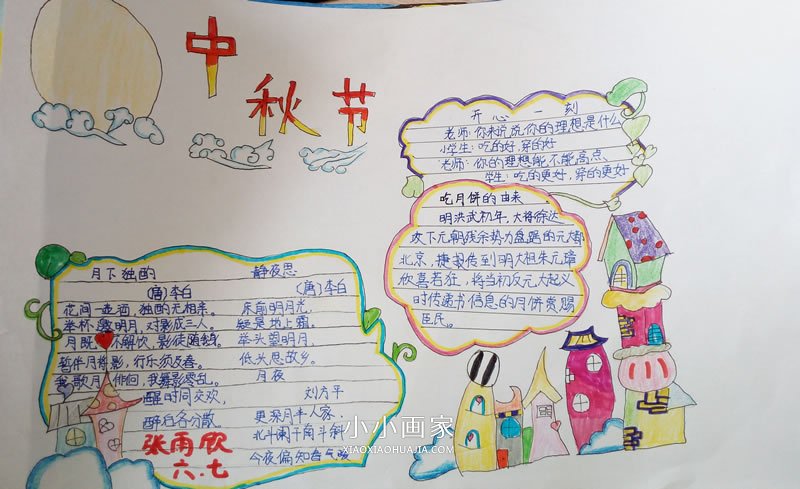 中秋节
开心一刻
老师:你来说说你的理想是什么
小学生:吃的好,穿的好
老师:你的理想能不能高点、
学生:吃的更好,穿的更好
吃月饼的由来
明洪武初年,大将徐达
攻下元朝残余势力盘踞的元大都
北京,捷报传到明太祖朱元璋
欣喜若狂,将当初反元大起义
时传递书信息的月饼赏赐
臣民。
月下独酌
(唐)李白
花间一壶酒,独酌无相亲。
举杯邀明月,对影成三人。
月既不解饮,影徒随我身。
暂伴月将影,行乐须及春。
我歌月徘徊,我舞影零乱。
醒时同交欢,
醉后各分散。
静夜思
(唐)李白
床前明月光,
疑是地上霜。
举头望明月,
低头思故乡。
月夜
刘方平
更深月半人家,
北斗阑干南斗斜
今夜偏知春气暖
张雨欣
六.七
小小画家
XIAOXIAOHUAJIA.COM